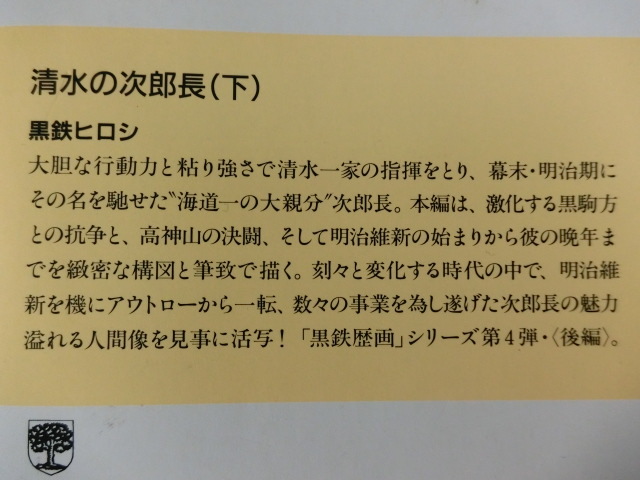 清水の次郎長(下)
黒鉄ヒロシ
大胆な行動力と粘り強さで清水一家の指揮をとり、幕末・明治期に
その名を馳せた〝海道一の大親分〟次郎長。本編は、激化する黒駒方
との抗争と、高神山の決闘、そして明治維新の始まりから彼の晩年ま
でを緻密な構図と筆致で描く。刻々と変化する時代の中で、明治維
新を機にアウトローから一転、数々の事業を為し遂げた次郎長の魅力
溢れる人間像を見事に活写!「黒鉄歴画」シリーズ第4弾・〈後編〉。